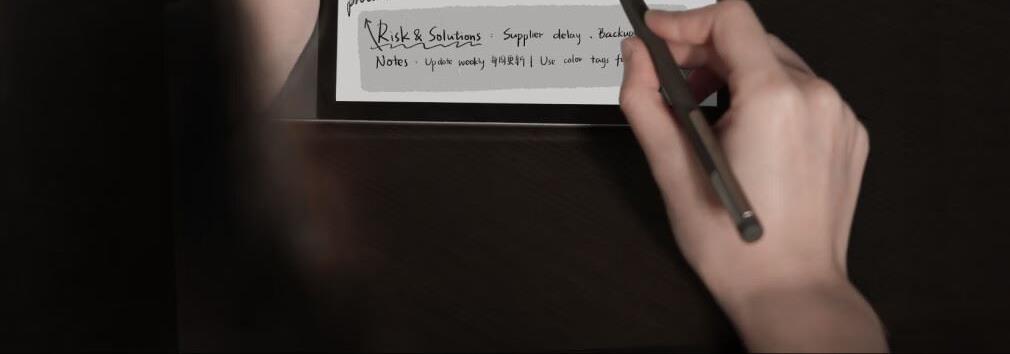 Risk & Solutions : Supplier delay . Backup
Notes · Update weekly 每周更新 | Use color tags